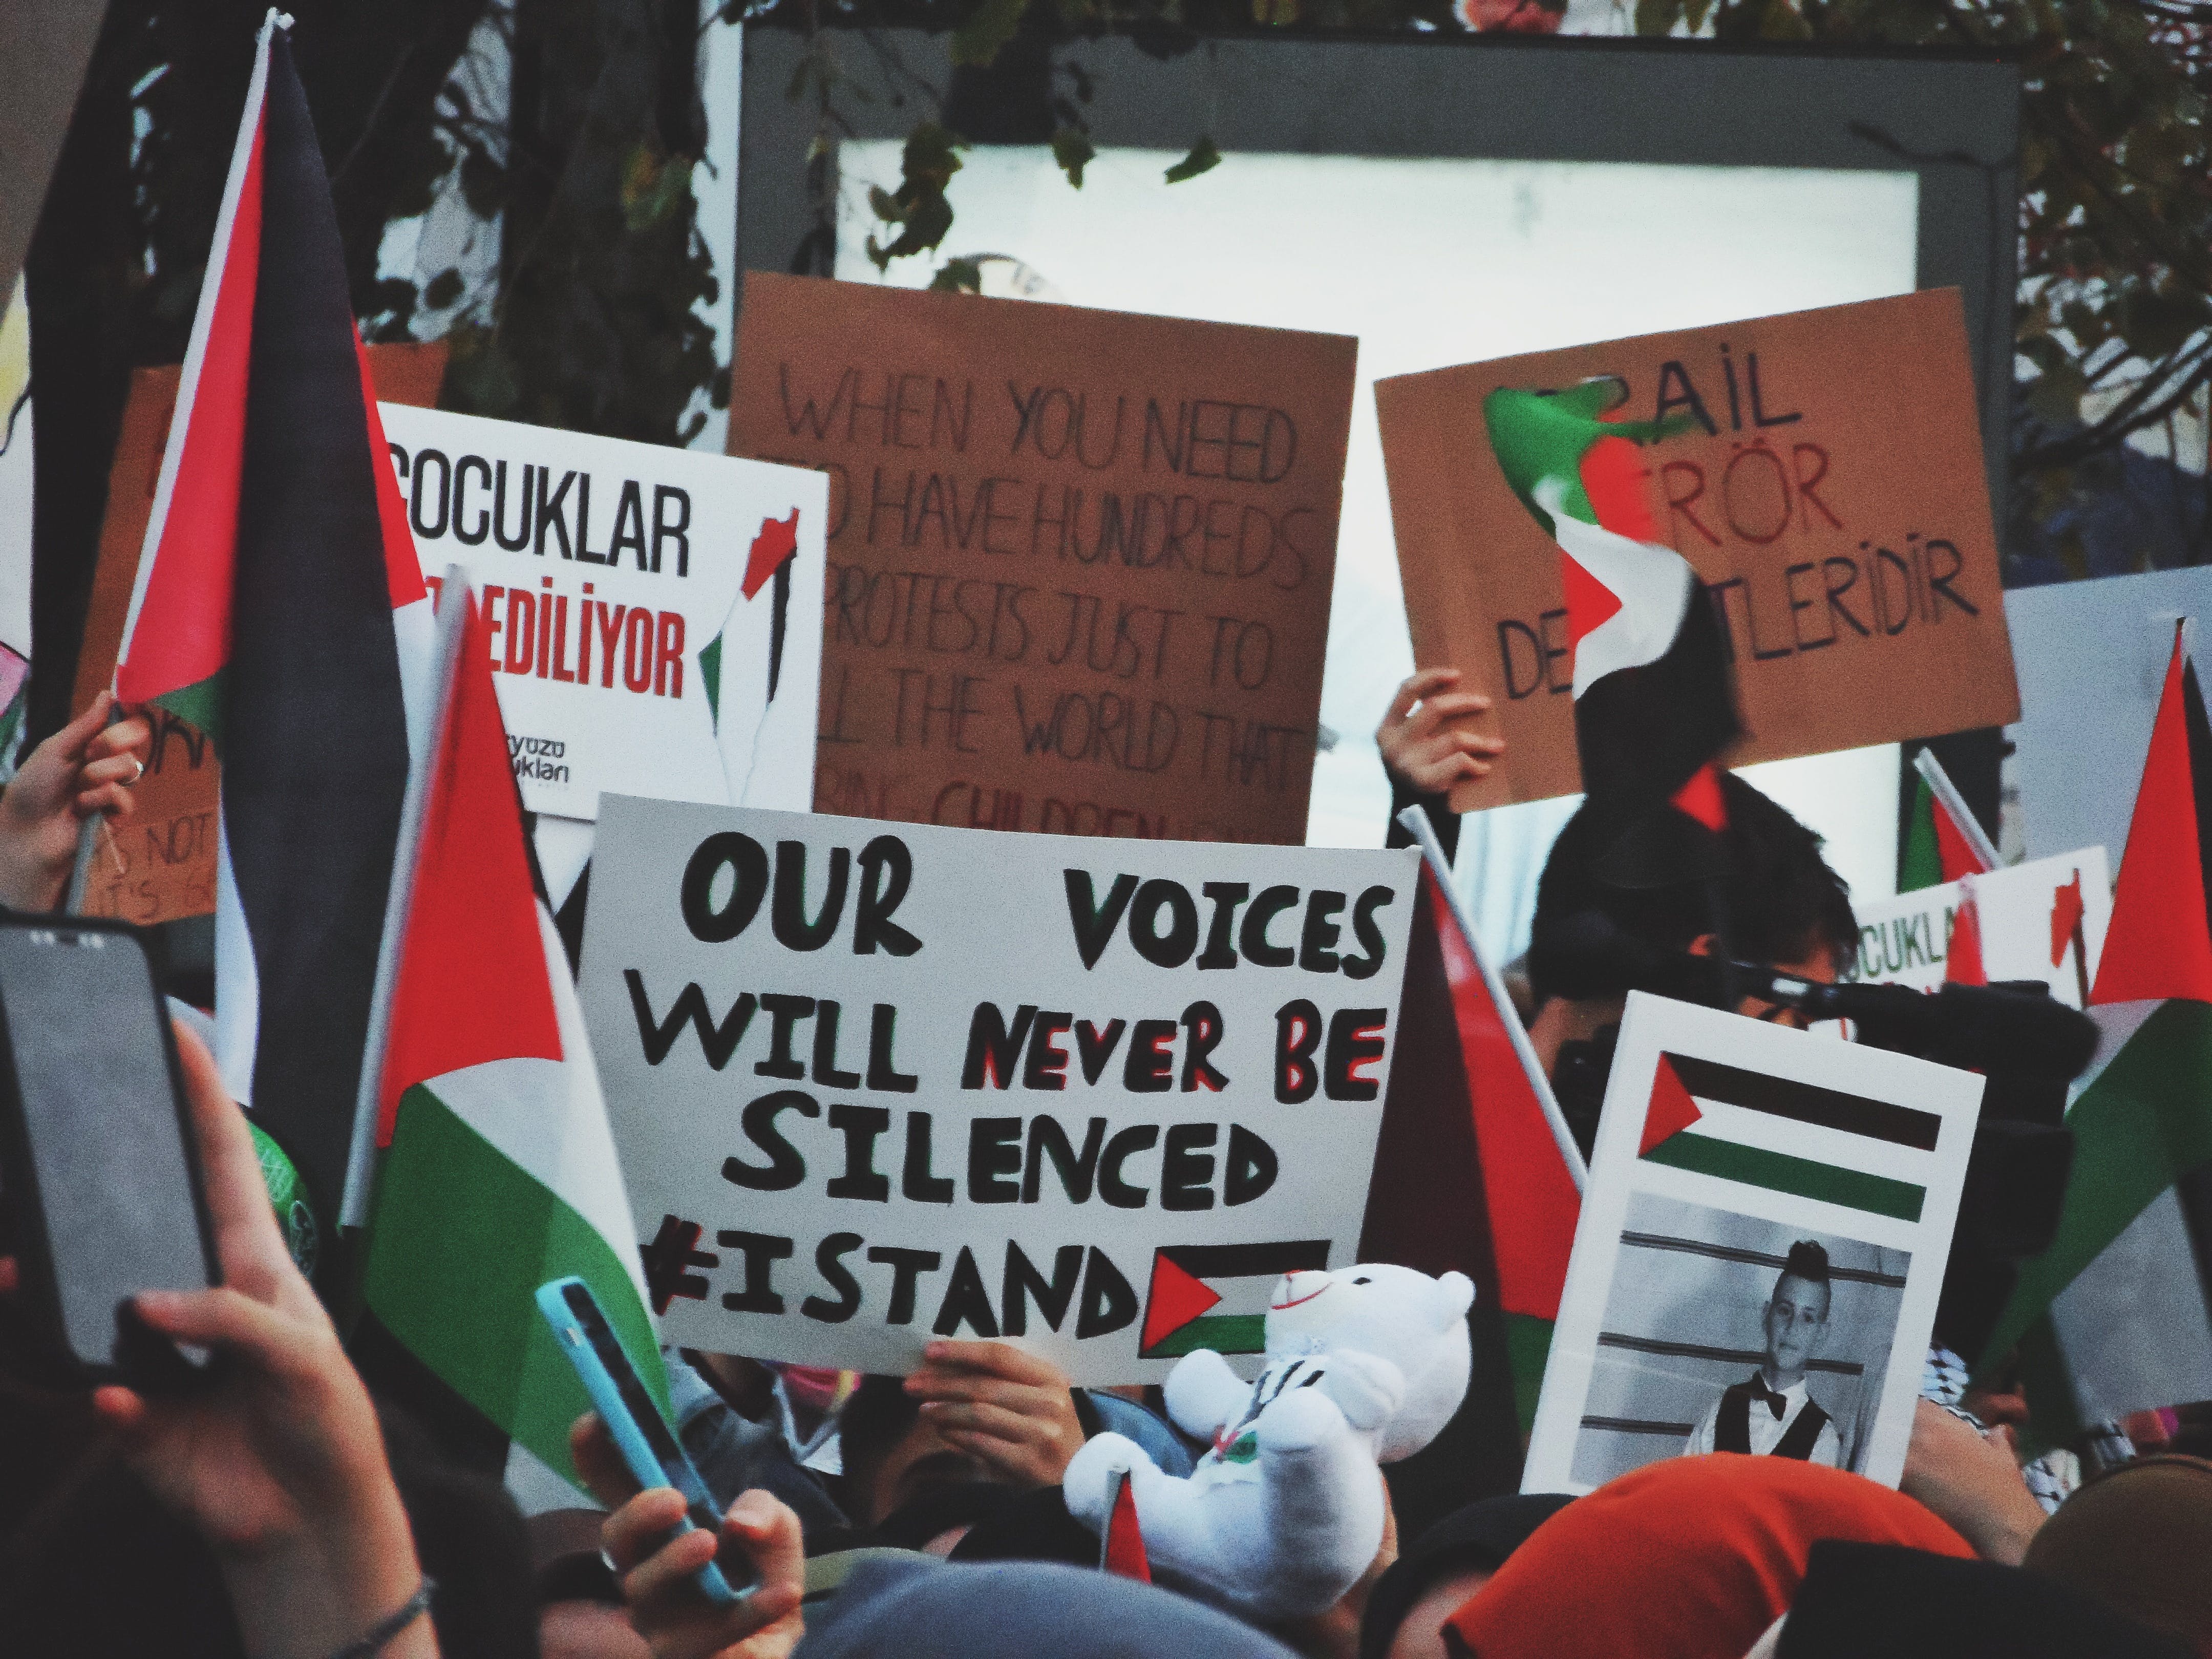 ÇOCUKLAR
EDİLİYOR
WHEN YOU NEED
TO HAVE HUNDREDS
PROTESTS JUST TO
THE WORLD THAT
CHILDREN
RAİL
RÖR
DE TLERİDİR
OUR VOICES
WILL NEVER BE
SILENCED
#ISTAND
NOT
IT'S
OCUKLA